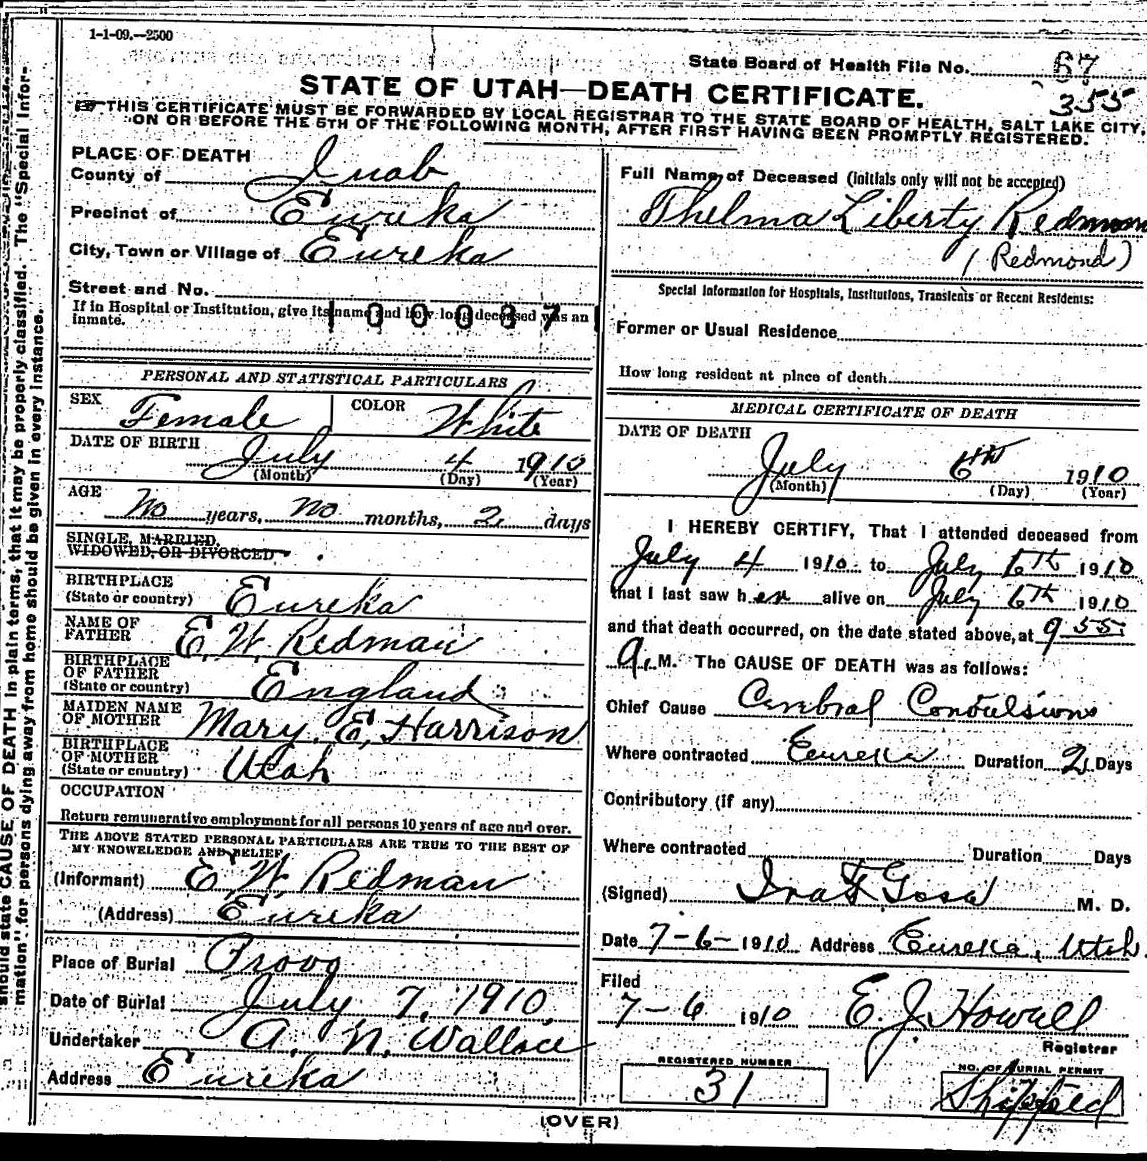 1-1-09.—2500
State Board of Health File No. 67
355
STATE OF UTAH—DEATH CERTIFICATE.
THIS CERTIFICATE MUST BE FORWARDED BY LOCAL REGISTRAR TO THE STATE BOARD OF HEALTH, SALT LAKE CITY,
ON OR BEFORE THE 5TH OF THE FOLLOWING MONTH, AFTER FIRST HAVING BEEN PROMPTLY REGISTERED.
should state CAUSE OF DEATH in plain terms, that it may be properly classified. The "Special Infor-
mation" for persons dying away from home should be given in every instance.
PLACE OF DEATH
County of Juab
Precinct of Eureka
City, Town or Village of Eureka
Street and No.
If in Hospital or Institution, give its name and how long deceased was an
Inmate.
PERSONAL AND STATISTICAL PARTICULARS
SEX Female COLOR White
DATE OF BIRTH July 4 1910
(Month) (Day) (Year)
AGE No years, No months, 2 days
SINGLE, MARRIED,
WIDOWED, OR DIVORCED
BIRTHPLACE
(State or country) Eureka
NAME OF
FATHER E. W. Redman
BIRTHPLACE
OF FATHER
(State or country) England
MAIDEN NAME
OF MOTHER Mary. E, Harrison
BIRTHPLACE
OF MOTHER
(State or country) Utah
OCCUPATION
Return remunerative employment for all persons 10 years of age and over.
THE ABOVE STATED PERSONAL PARTICULARS ARE TRUE TO THE BEST OF
MY KNOWLEDGE AND BELIEF
(Informant) E. W. Redman
(Address) Eureka
Place of Burial Provo
Date of Burial July 7, 1910.
Undertaker A. N. Wallace
Address Eureka
Full Name of Deceased (Initials only will not be accepted)
Thelma Liberty Redman
(Redmond)
Special Information for Hospitals, Institutions, Transients or Recent Residents:
Former or Usual Residence
How long resident at place of death
MEDICAL CERTIFICATE OF DEATH
DATE OF DEATH
July 6th 1910
(Month) (Day) (Year)
I HEREBY CERTIFY, That I attended deceased from
July 4 1910 to July 6th 1910
that I last saw her alive on July 6th 1910
and that death occurred, on the date stated above, at 9 55
a. M. The CAUSE OF DEATH was as follows:
Chief Cause Cerebral Convulsions
Where contracted Eureka Duration 2 Days
Contributory (if any)
Where contracted Duration Days
(Signed) M. D.
Date 7-6- 1910 Address Eureka, Utah.
Filed
7-6 1910 E. J. Howell
Registrar
REGISTERED NUMBER
31
NO. OF BURIAL PERMIT
Shipped
(OVER)